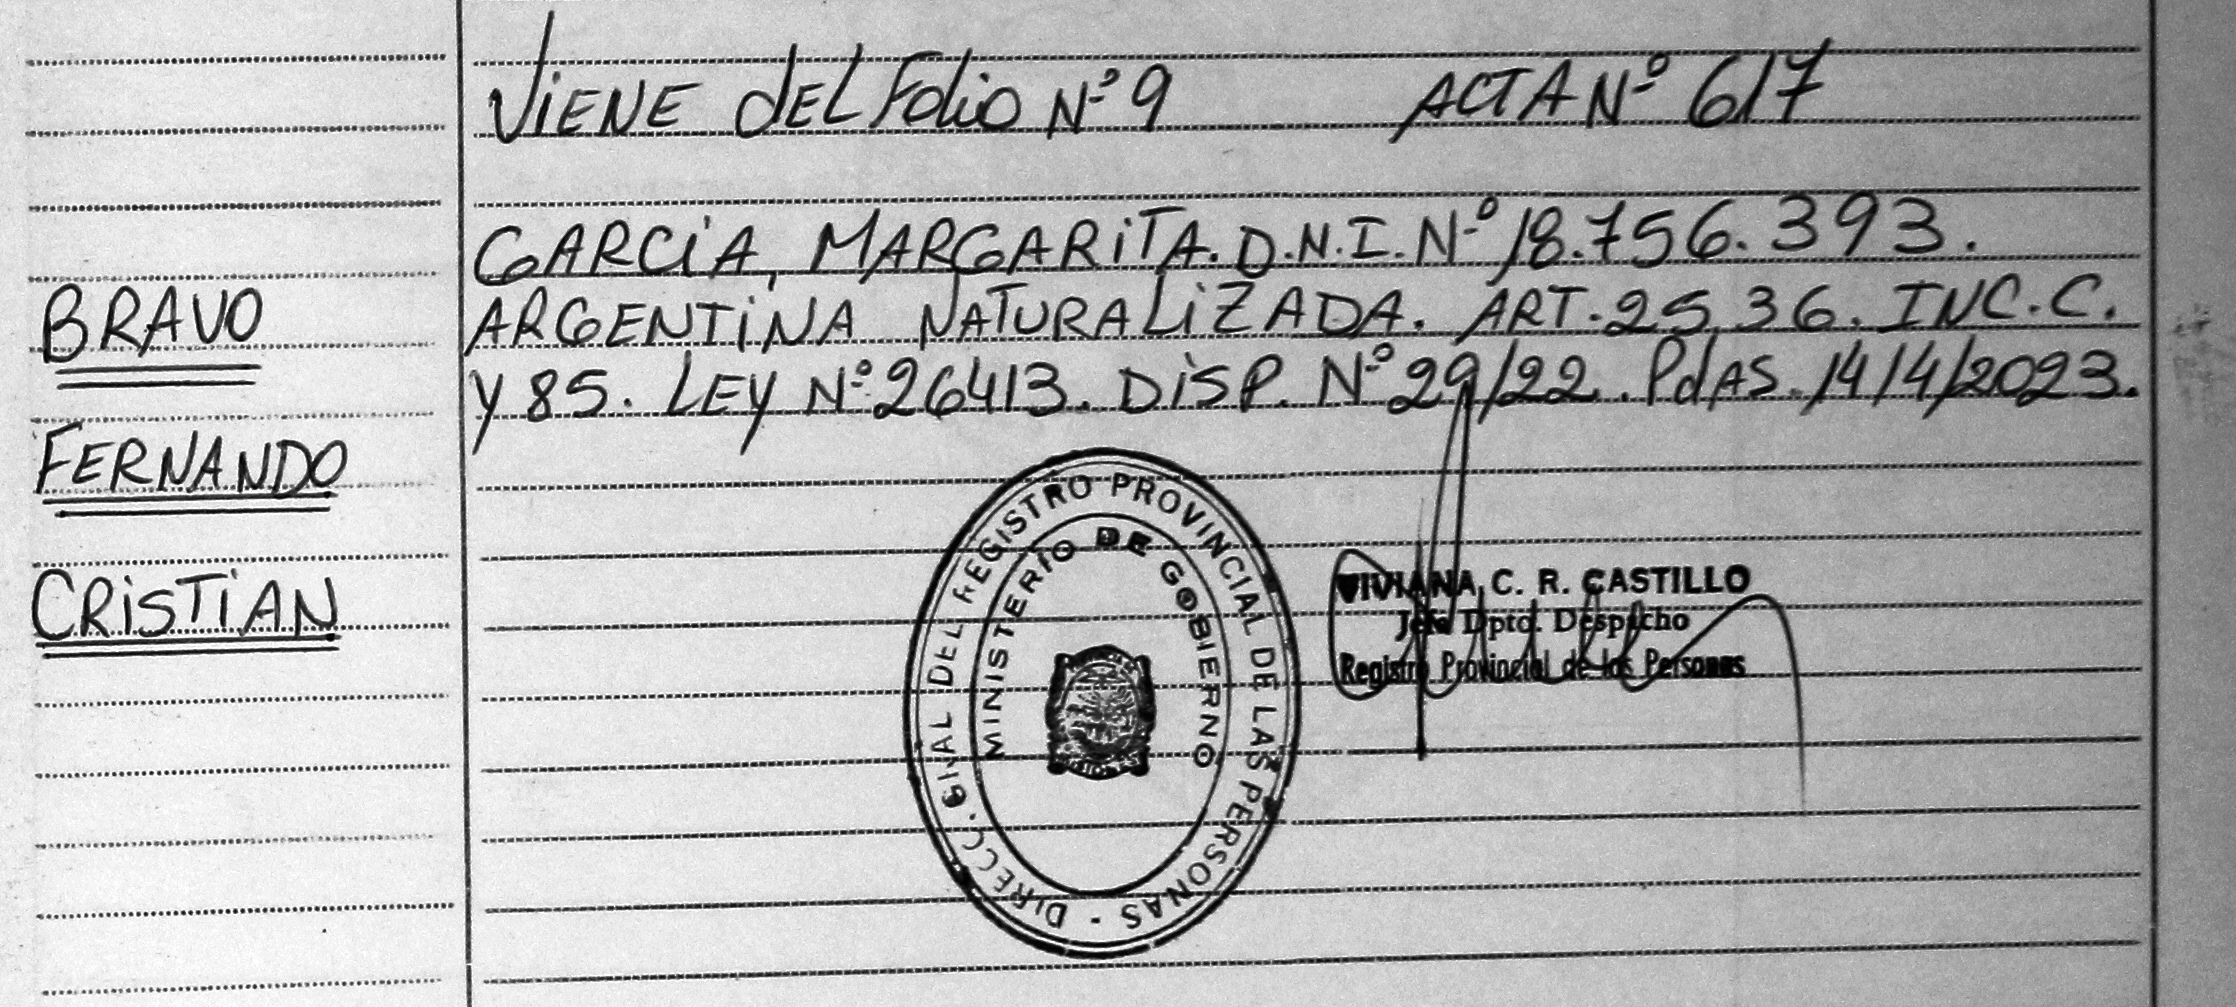 VIENE DEL FOLIO Nº 9 ACTA Nº 617
GARCÍA, MARGARITA. D.N.I. Nº 18.756.393.
ARGENTINA NATURALIZADA. ART. 25, 36. INC. C.
Y 85. LEY Nº 26413. DISP. Nº 29/22. PdAS. 14/4/2023.
BRAVO
FERNANDO
CRISTIAN
DIRECC. GRAL DEL REGISTRO PROVINCIAL DE LAS PERSONAS -
MINISTERIO DE GOBIERNO
VIVIANA C. R. CASTILLO
Jefa Dpto. Despacho
Registro Provincial de las Personas